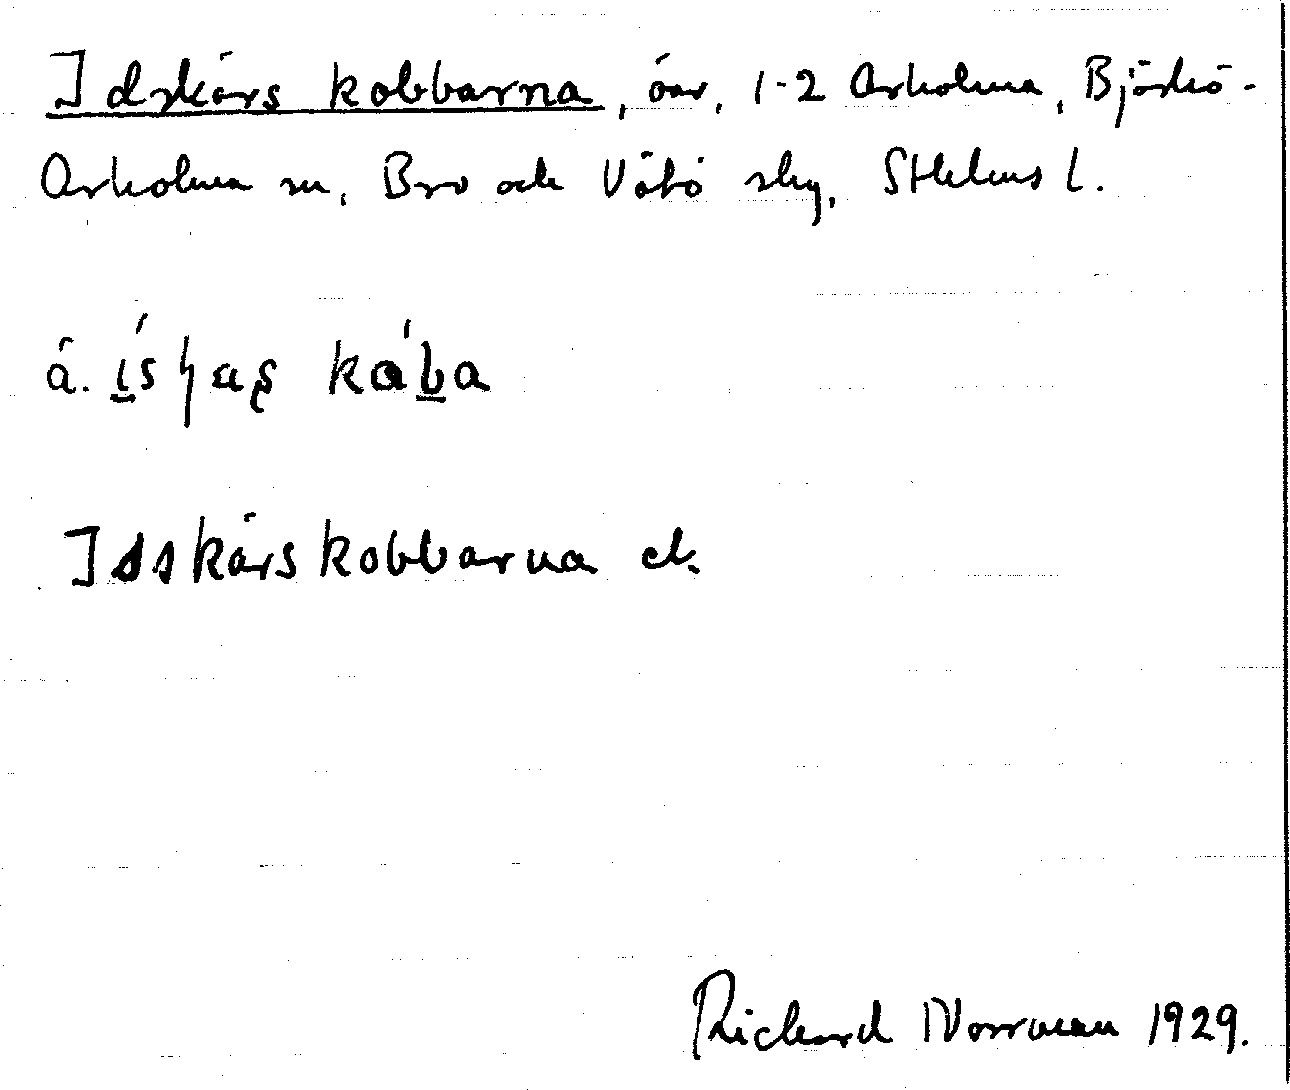 Idskärs kobbarna, öar, 1-2 Arholma, Björkö-
Arholma sn, Bro och Vätö skg, Sthlms l.
å. 
Isskärskobbarna ek.
Richard Norrman 1929.